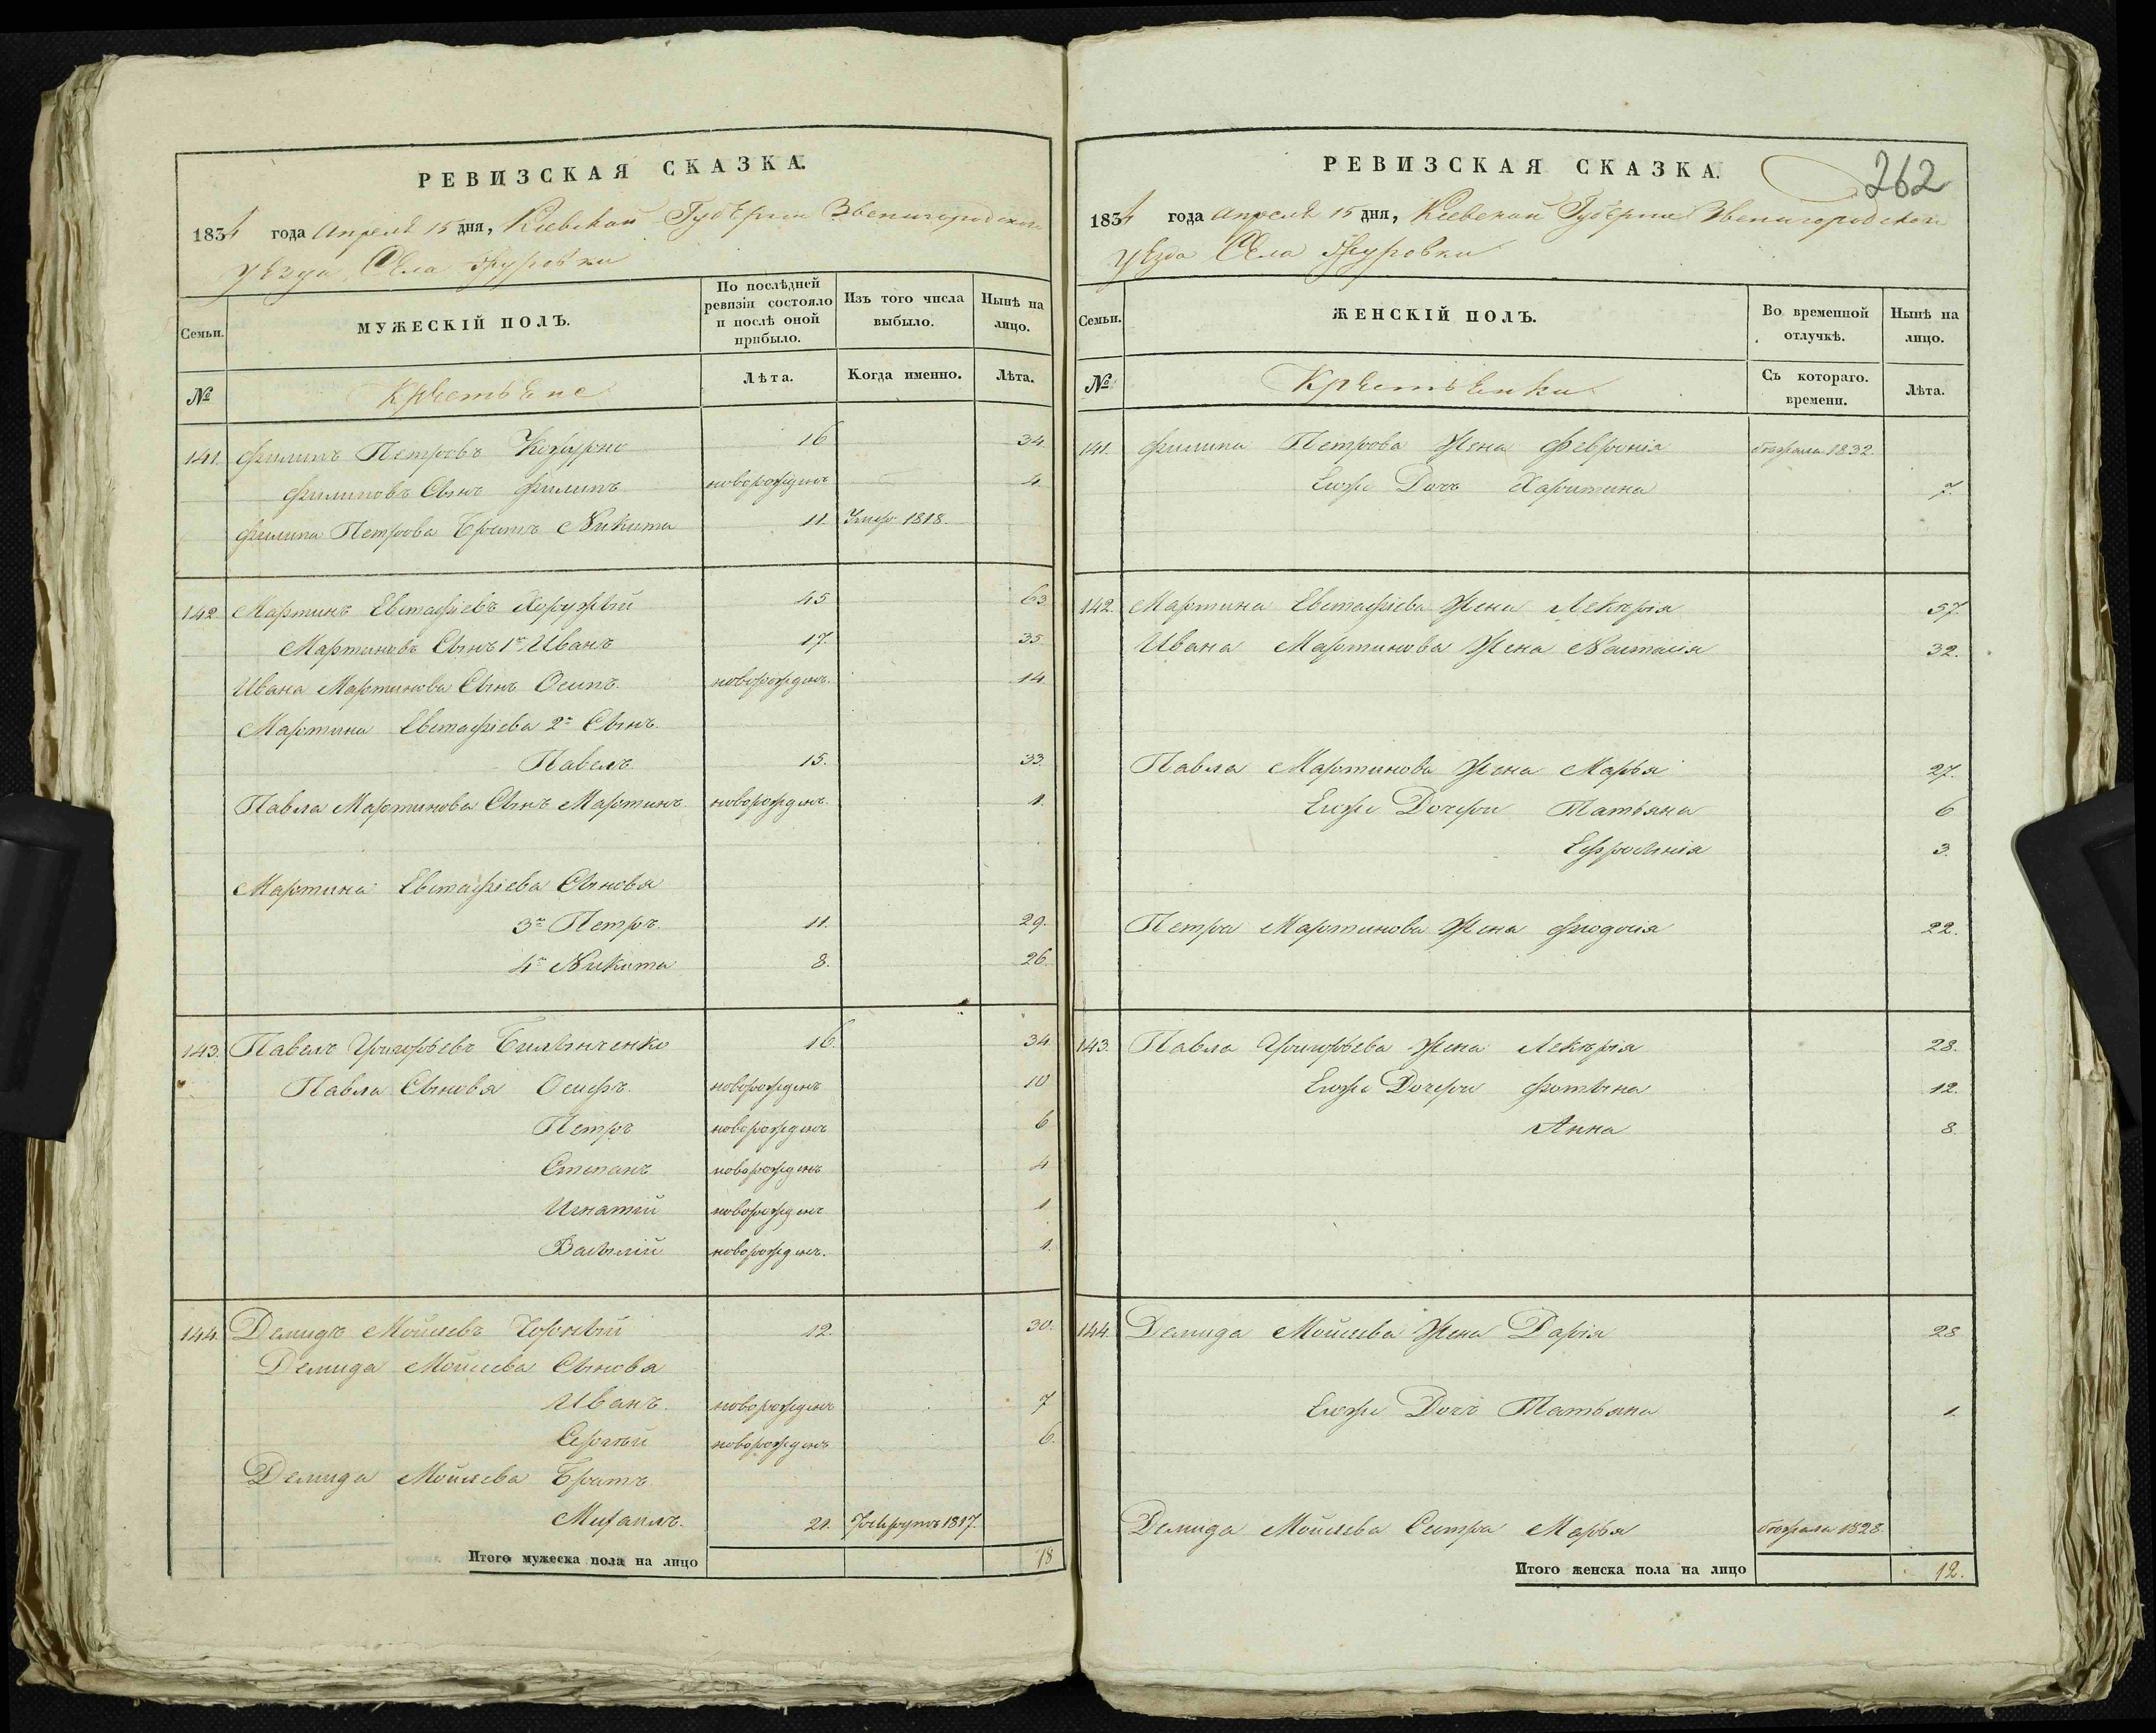 РЕВИЗСКАЯ СКАЗКА.
1834 года Апреля 15 дня, Киевской Губернии Звенигородского
уезда Села Журовки
Семьи.
МУЖЕСКІЙ ПОЛЪ.
По послѣдней ревизіи состояло и послѣ оной прибыло.
Изъ того числа выбыло.
Нынѣ на лицо.
№
Крестьяне
Лѣта.
Когда именно.
Лѣта.
141. Филипъ Петровъ 16 34.
Филиповъ Сынъ Филипъ новорожденъ 4.
Филипа Петрова Братъ Никита 11. Умеръ 1818.
142. Мартинъ Евстафіевъ Хоружый 45 63
Мартиновъ Сынъ 1й Иванъ 17. 35
Ивана Мартинова Сынъ Осипъ. новорожденъ. 14
Мартина Евстафіева 2й Сынъ.
Павелъ 15. 33.
Павла Мартинова Сынъ Мартинъ новорожденъ. 1.
Мартина Евстафіева Сыновя
3й Петръ. 11. 29.
4й Никита 8. 26.
143. Павелъ Григорьевъ 16. 34
Павла Сыновя Осифъ. новорожденъ 10
Петръ новорожденъ 6
Степанъ новорожденъ 4
Игнатий новорожденъ 1
Василій новорожденъ. 1.
144. Демидъ Мойсеевъ Чорный 12. 30.
Демида Мойсеева Сыновя
Иванъ. новорожденъ 7
Сергѣй новорожденъ 6.
Демида Мойсеева Братъ
Михаилъ. 21. 1817.
Итого мужеска пола на лицо 18
262
РЕВИЗСКАЯ СКАЗКА.
1834 года Апреля 15 дня, Киевской Губернии Звенигородского
уезда Села Журовки
Семьи.
ЖЕНСКІЙ ПОЛЪ.
Во временной отлучкѣ.
Нынѣ на лицо.
№
Крестьянки
Съ котораго. времени.
Лѣта.
141. Филипа Петрова Жена Февронія 1832.
Егоже Дочь Харитина 7.
142. Мартина Евстафіева Жена Лекерія 57.
Ивана Мартинова Жена Настасія 32.
Павла Мартинова Жена Марья 27.
Егоже Дочери Татьяна 6
Ефросинія 3.
Петра Мартинова Жена Феодосія 22.
143. Павла Григорьева Жена Лекерія 28.
Егоже Дочери Фотына 12.
Анна 8.
144. Демида Мойсеева Жена Дарія 28
Егоже Дочь Татьяна 1.
Демида Мойсеева Сестра Марья 1828.
Итого женска пола на лицо 12.